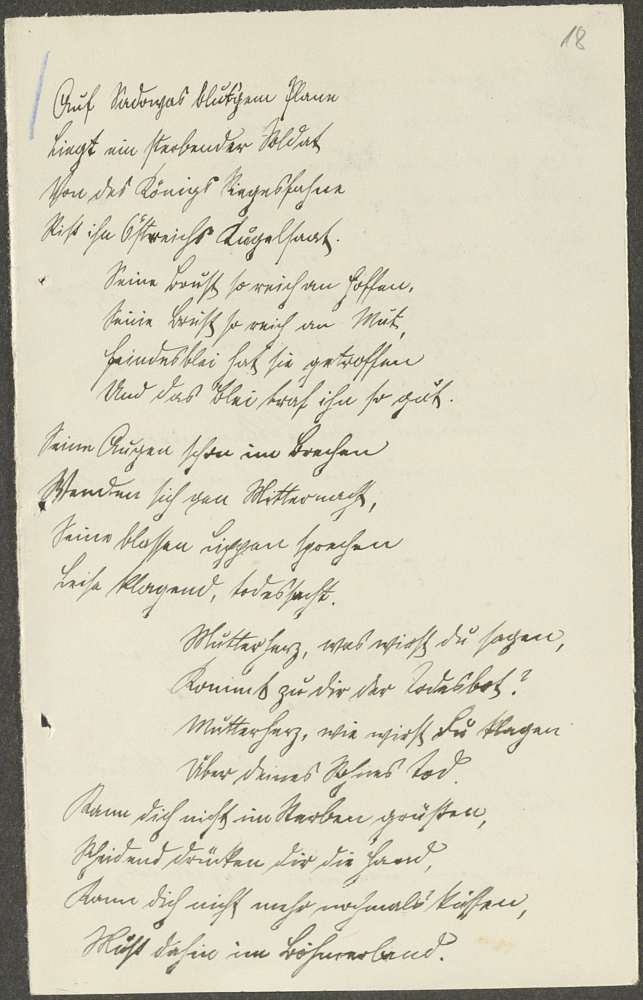 18
Auf Sadowas blut'gem Plane
Liegt ein sterbender Soldat
Von des Königs Siegesfahne
Riß ihn Östreichs Kugelsaat.
Seine Brust so reich an Hoffen,
Seine Brust so reich an Mut,
Feindesblei hat sie getroffen
Und das Blei traf ihn so gut.
Seine Augen schon im Brechen
Wenden sich gen Mitternacht,
Seine blassen Lippen sprechen
Leise klagend, todessacht.
Mutterherz, was wirst du sagen,
Kommt zu dir der Todesbot?
Mutterherz, wie wirst du klagen
Über deines Sohnes Tod.
Kann dich nicht im Sterben grüßen,
Scheidend drücken dir die Hand,
Kann dich nicht mehr nochmals küssen,
Muß dahin im Böhmerland.